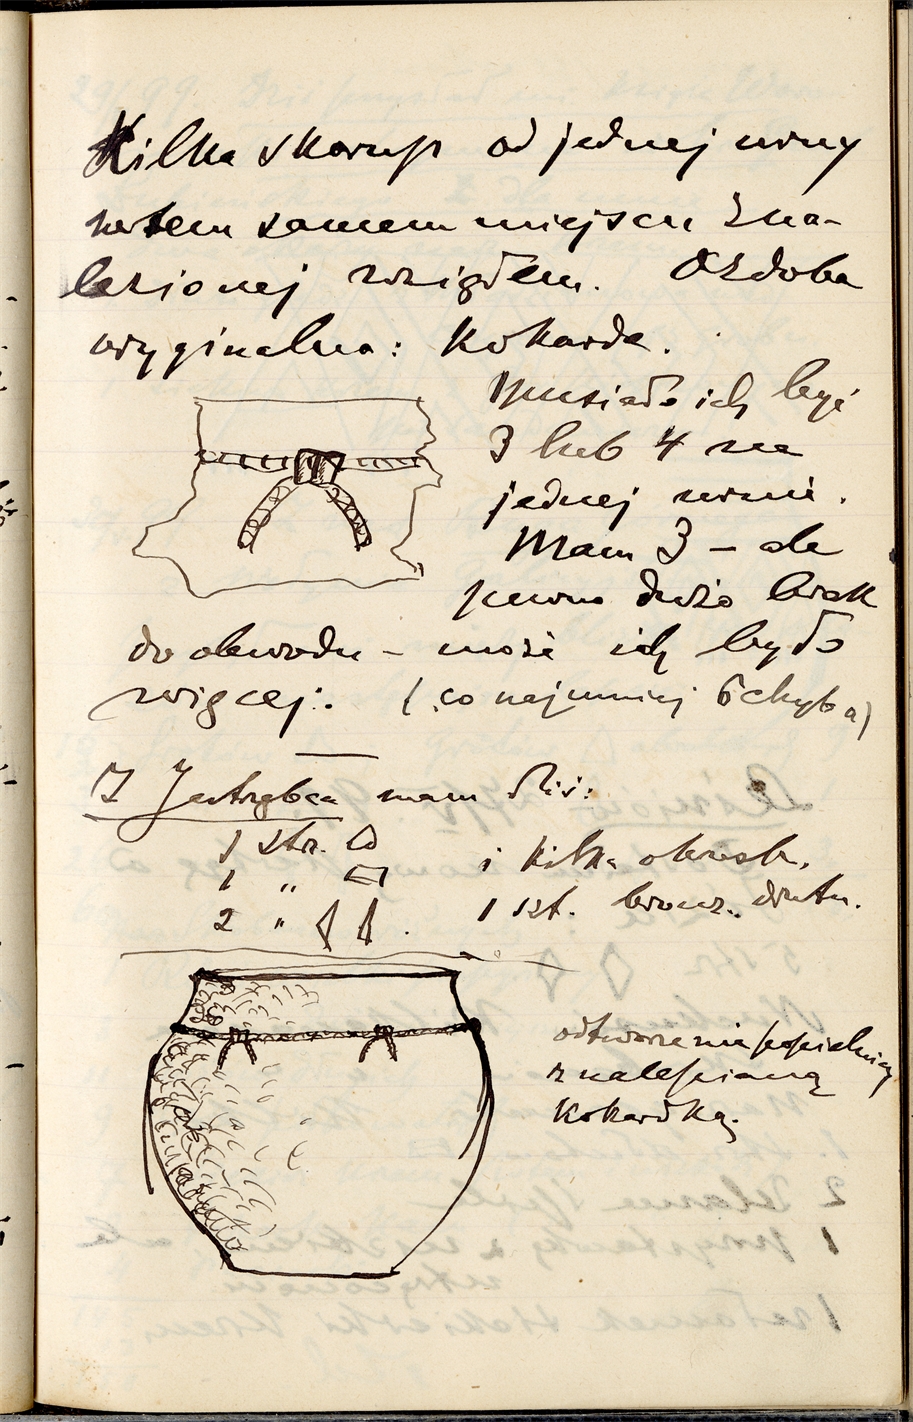 Kilka skorup od jednej urny
w tem samem miejscu zna-
lezionej wziąłem. Ozdoba
oryginalna: Kokarda.
Musiało ich być
3 lub 4 na
jednej urnie.
Mam 3 – ale
pewno dużo brak
do obwodu – może ich było
więcej. (co najmniej 6 chyba)
Z Jastrzębca mam dziś:
1 strz. i kilka okrzesk.
1 "
2 " . 1 szt. bronz. drutu.
odtworzenie popielnicy
z nalepianą
Kokardką.